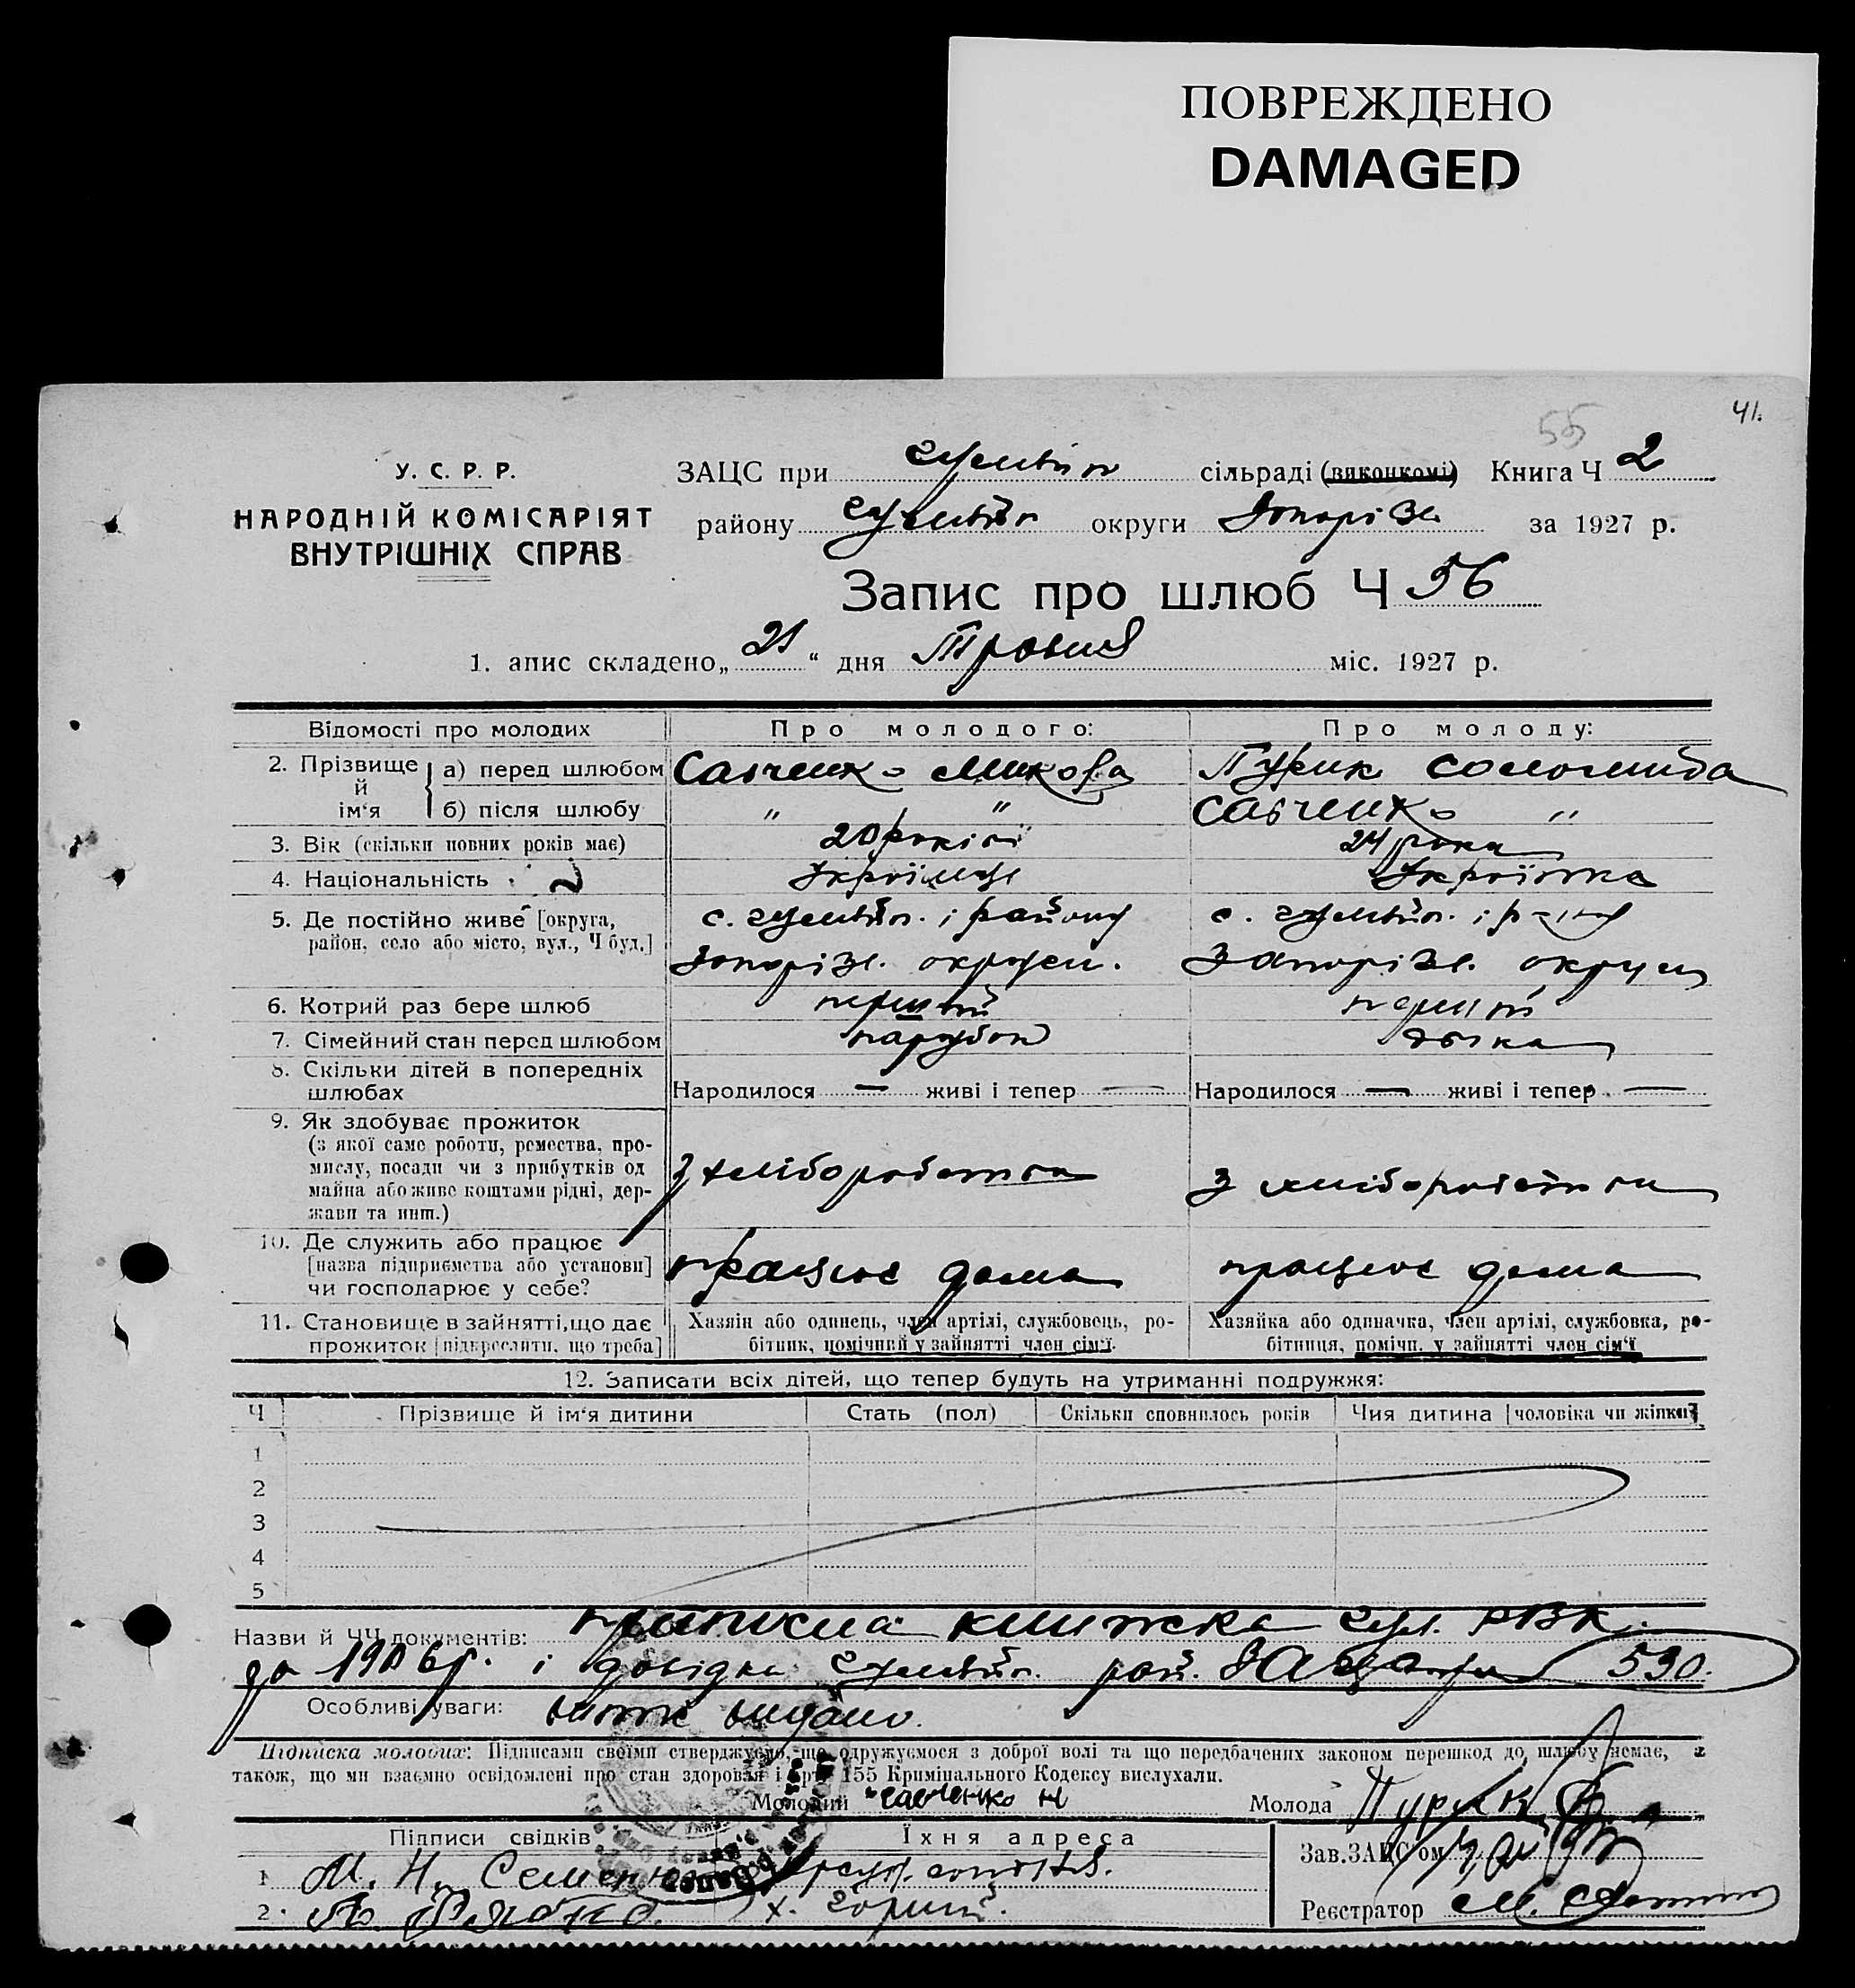 ПОВРЕЖДЕНО
DAMAGED
55
41.
У. С. Р. Р.
НАРОДНІЙ КОМІСАРІЯТ
ВНУТРІШНІХ СПРАВ
ЗАЦС при сільраді (виконкомі) Книга Ч 2
району округи Запорізк за 1927 р.
Запис про шлюб Ч 56
1. апис складено „21“ дня Травня міс. 1927 р.
Відомості про молодих Про молодого: Про молоду:
2. Прізвище й ім‘я
а) перед шлюбом Савченко Микола Пурик Соломонида
б) після шлюбу " " Савченко "
3. Вік (скільки повних років має) 20 років 24 роки
4. Національність Україінець Украінка
5. Де постійно живе [округа, район, село або місто, вул., Ч буд.]
с. і району с. і р-ну
Запорізк. округи. Запорізк. округи
6. Котрий раз бере шлюб перший перший
7. Сімейний стан перед шлюбом парубок дівка
8. Скільки дітей в попередніх шлюбах Народилося — живі і тепер — Народилося — живі і тепер —
9. Як здобуває прожиток
(з якої саме роботи, ремества, про-
мислу, посади чи з прибутків од
майна або живе коштами рідні, дер-
жави та инш.)
з хліборобства з хліборобства
10. Де служить або працює
[назва підприємства або установи]
чи господарює у себе?
працює дома працює дома
11. Становище в зайнятті, що дає
прожиток [підкреслити, що треба]
Хазяін або одинець, член артілі, службовець, ро-
бітник, помічний у зайнятті член сім‘ї.
Хазяйка або одиначка, член артілі, службовка, ро-
бітниця, помічн. у зайнятті член сім‘ї
12. Записати всіх дітей, що тепер будуть на утриманні подружжя:
Ч Прізвище й ім‘я дитини Стать (пол) Скільки сповнилось років Чия дитина [чоловіка чи жінки]
1
2
3
4
5
Назви й ЧЧ документів: приписна книжка РВК.
за 1906 р. і довідка рай. ЗАЦСу 530.
Особливі уваги: видано.
Підписка молодих: Підписами своїми стверджуємо, що одружуємося з доброї волі та що передбачених законом перешкод до шлюбу немає, а
також, що ми взаємно освідомлені про стан здоровля і арт. 155 Кримінального Кодексу вислухали.
Молодий Савченко М Молода Пурик
Підписи свідків Їхня адреса Зав. ЗАЦС‘ом
1 М. Н. Семенюк
2. х. Реєстратор М.